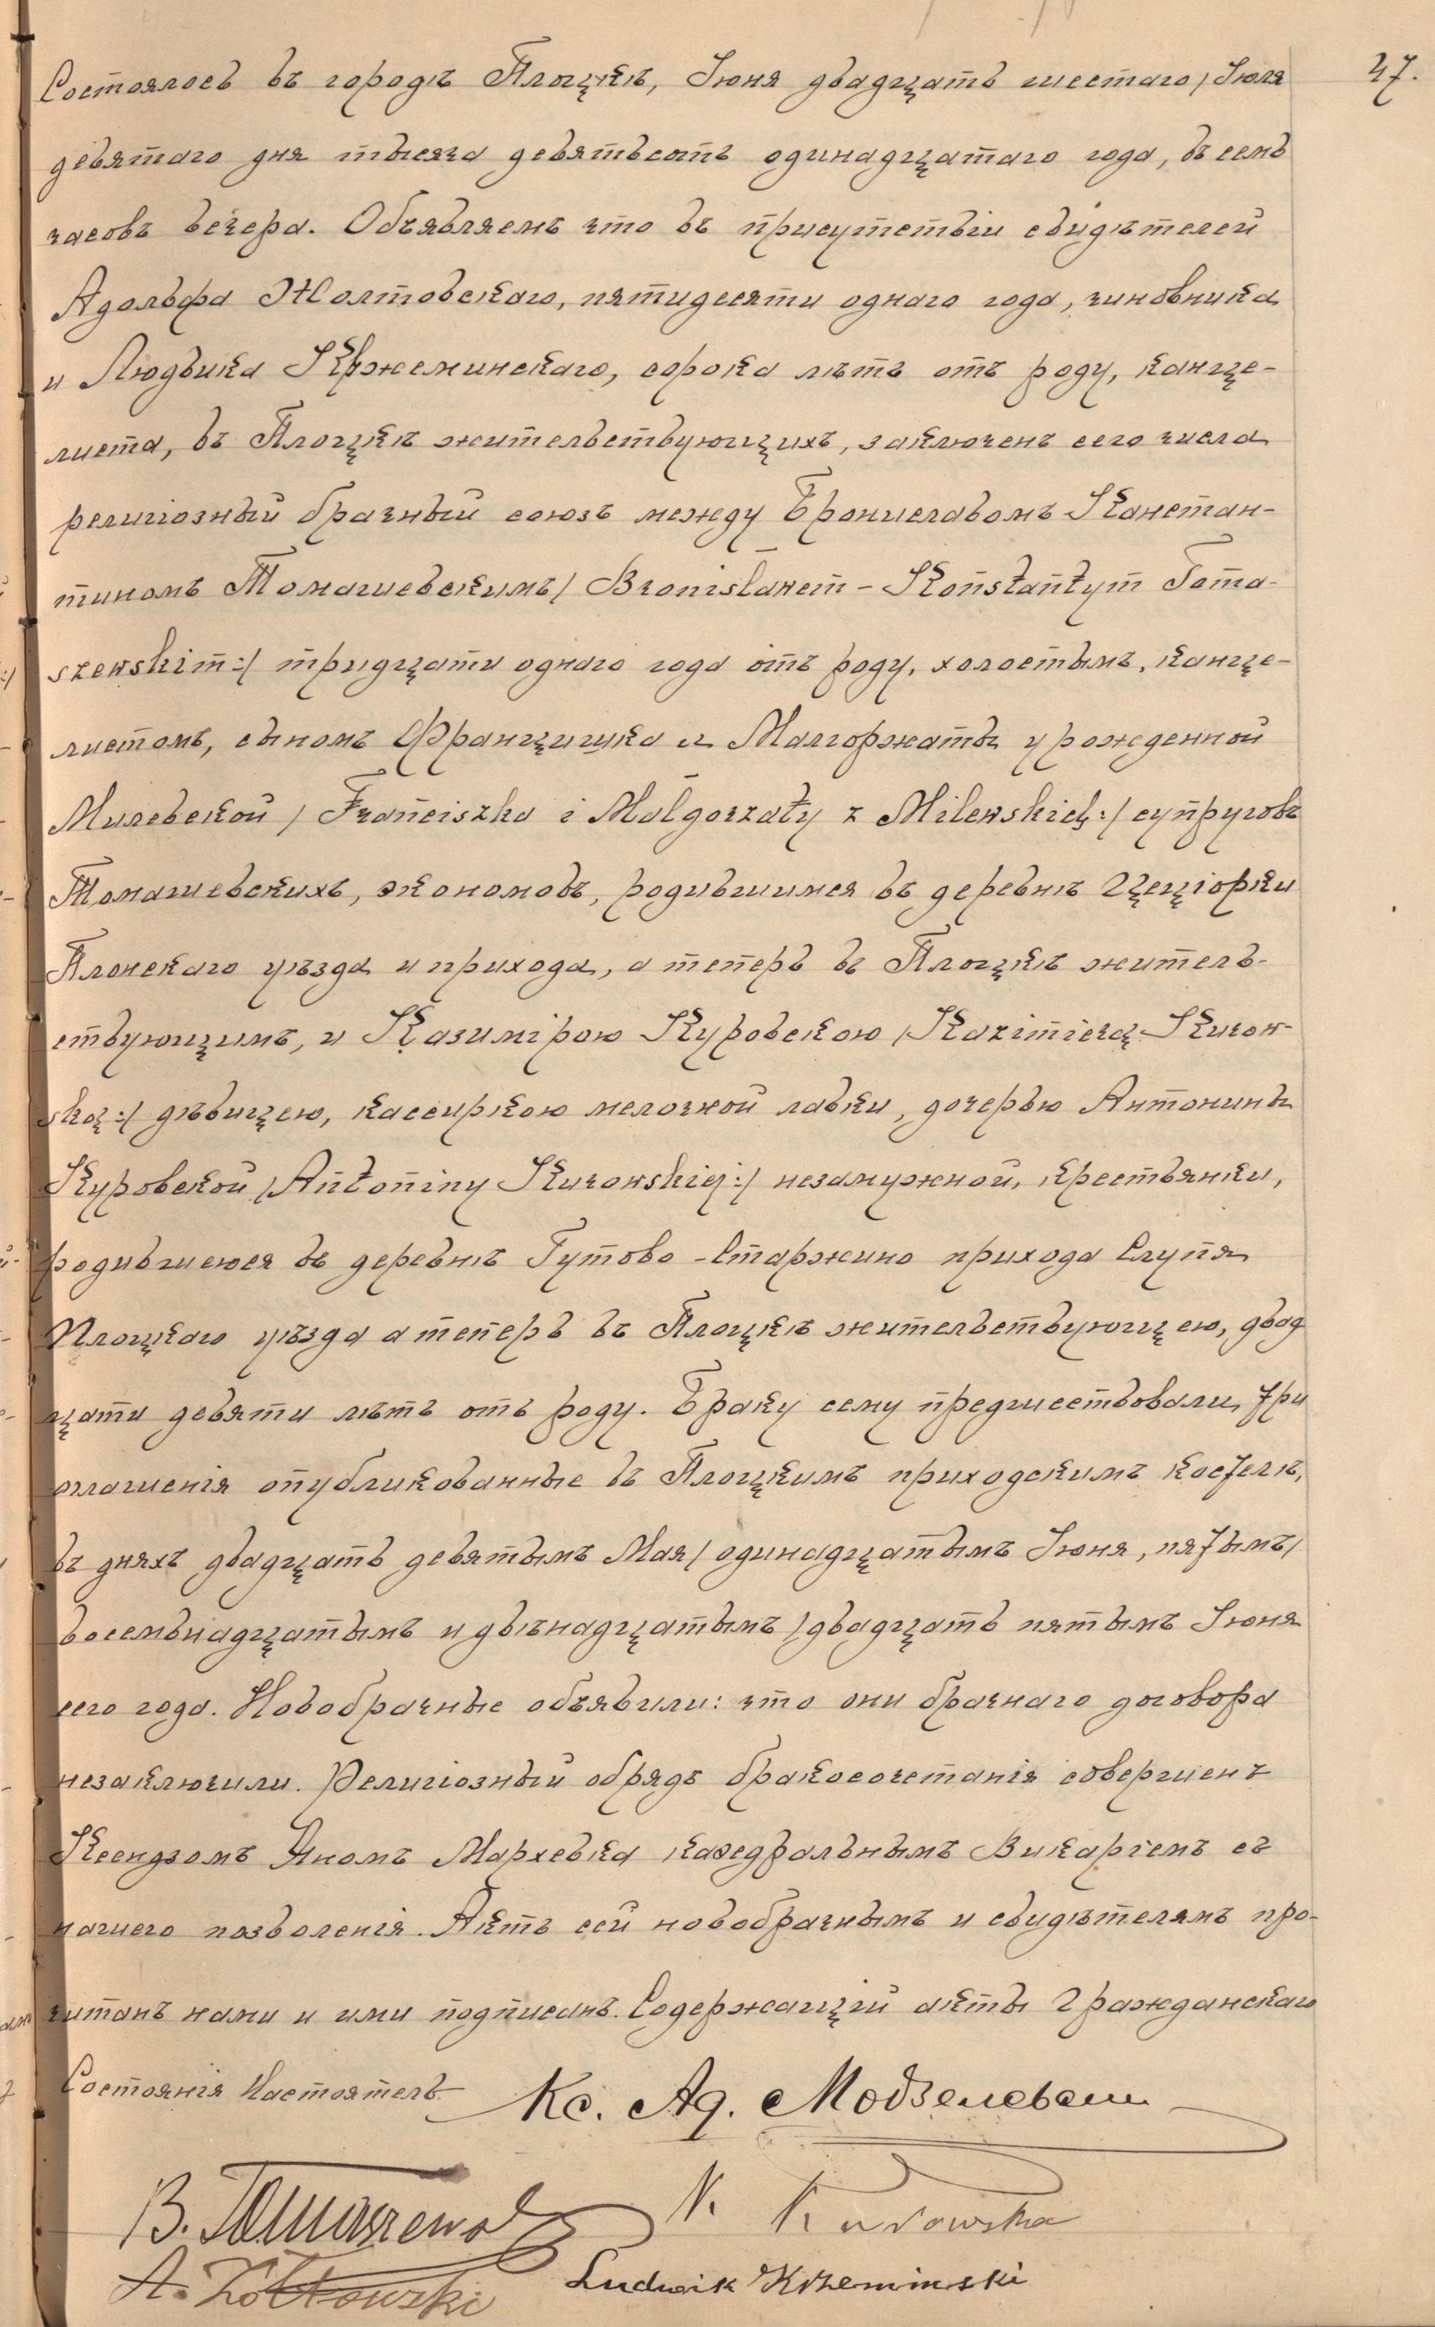 47.
Состоялось въ городѣ Плоцкѣ, Іюня двадцать шестаго / Іюля
девятаго дня тысяча девятьсотъ одинадцатаго года, въ семь
часовъ вечера. Объявляемъ что въ присутствіи свидѣтелей
Адольфа Жолтовскаго, пятидесяти одного года, чиновника
и Людвика Кржеминскаго, сорока лѣтъ отъ роду, канце-
листа, въ Плоцкѣ жительствующихъ, заключенъ сего числа
религіозный брачный союзъ между Брониславомъ Констан-
тиномъ Томашевскимъ / Bronisławem - Konstantym Toma-
szewskim :/ тридцати одного года отъ роду, холостымъ, канце-
листомъ, сыномъ Францишка и Малгоржаты урожденной
Милевской / Franciszka i Małgorzaty z Milewskich :/ супруговъ
Томашевскихъ, экономовъ, родившимся въ деревнѣ Цецiорки
Плонскаго уѣзда и прихода, а теперь въ Плоцкѣ житель-
ствующимъ, и Казимірою Куровскою / Kazimierą Kurow-
ską :/ дѣвицею, кассиркою мелочной лавки, дочерью Антонины
Куровской / Antoniny Kurowskiej :/ незамужной, крестьянки,
родившеюся въ деревнѣ Гутово - Старжино прихода Слупя
Плоцкаго уѣзда а теперь въ Плоцкѣ жительствующею, двад
цати девяти лѣтъ отъ роду. Браку сему предшествовали три
оглашенія опубликованные въ Плоцкимъ приходскимъ костелѣ,
въ дняхъ двадцать девятымъ Мая / одинадцатымъ Іюня, пятымъ /
восемьнадцатымъ и двѣнадцатымъ / двадцать пятымъ Іюня
сего года. Новобрачные объявили: что они брачнаго договора
незаключили. Религіозный обрядъ бракосочетанія совершенъ
Ксендзомъ Яномъ Мархевка каѳедральнымъ Викаріемъ съ
нашего позволенія. Актъ сей новобрачнымъ и свидѣтелямъ про-
читанъ нами и ими подписанъ. Содержащій акты Гражданскаго
Состоянія Настоятель Кс. Ад. Модзелевски
В. Томашевс
K. Kurowska
A. Żółtowski
Ludwik Krzeminski